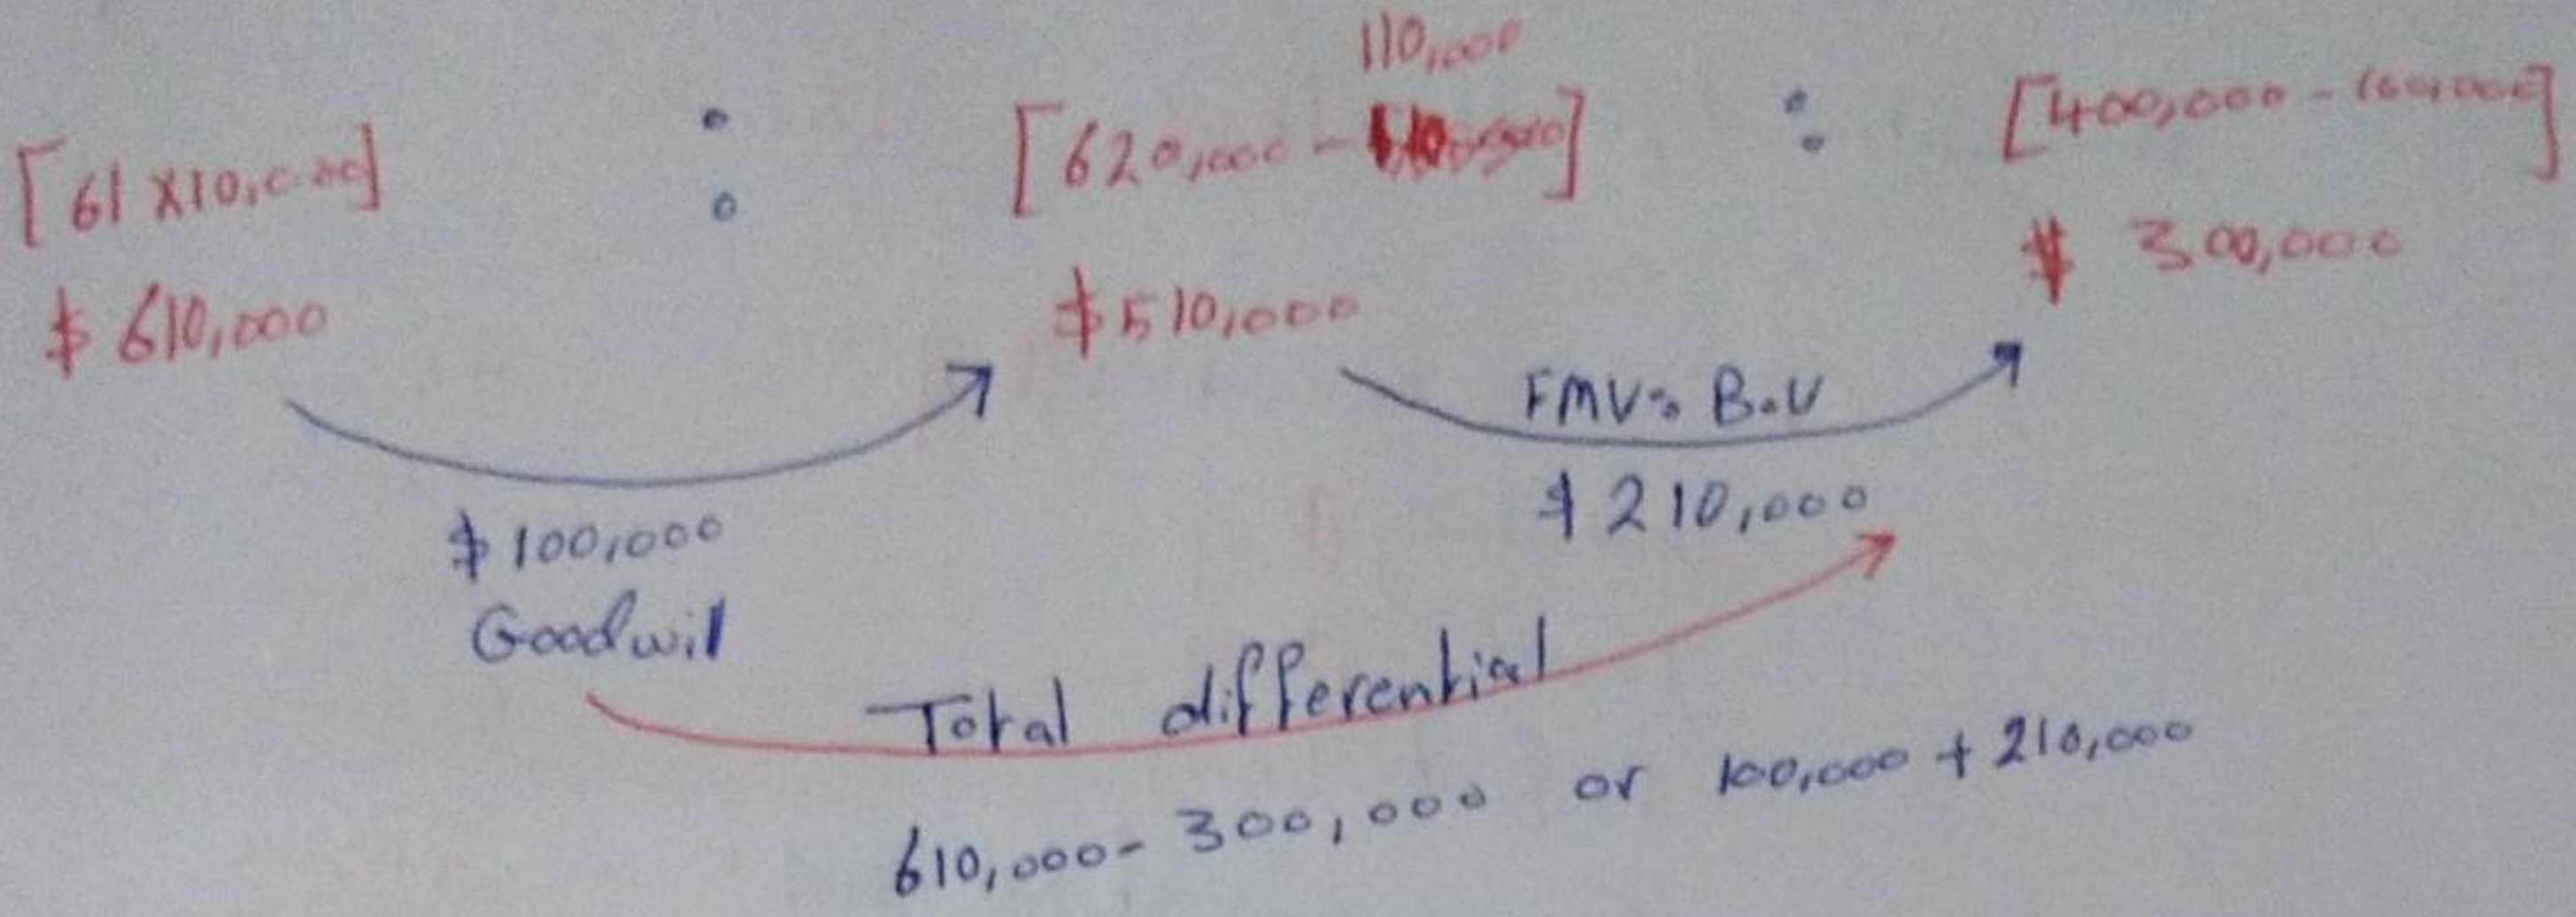 110,000
[61 X10,000] : [620,000 - ] : [400,000 - 100,000]
$ 610,000 $ 510,000 $ 300,000
FMV: B.V
$ 100,000 $ 210,000
Goodwill
Total differential
610,000- 300,000 or 100,000 + 210,000